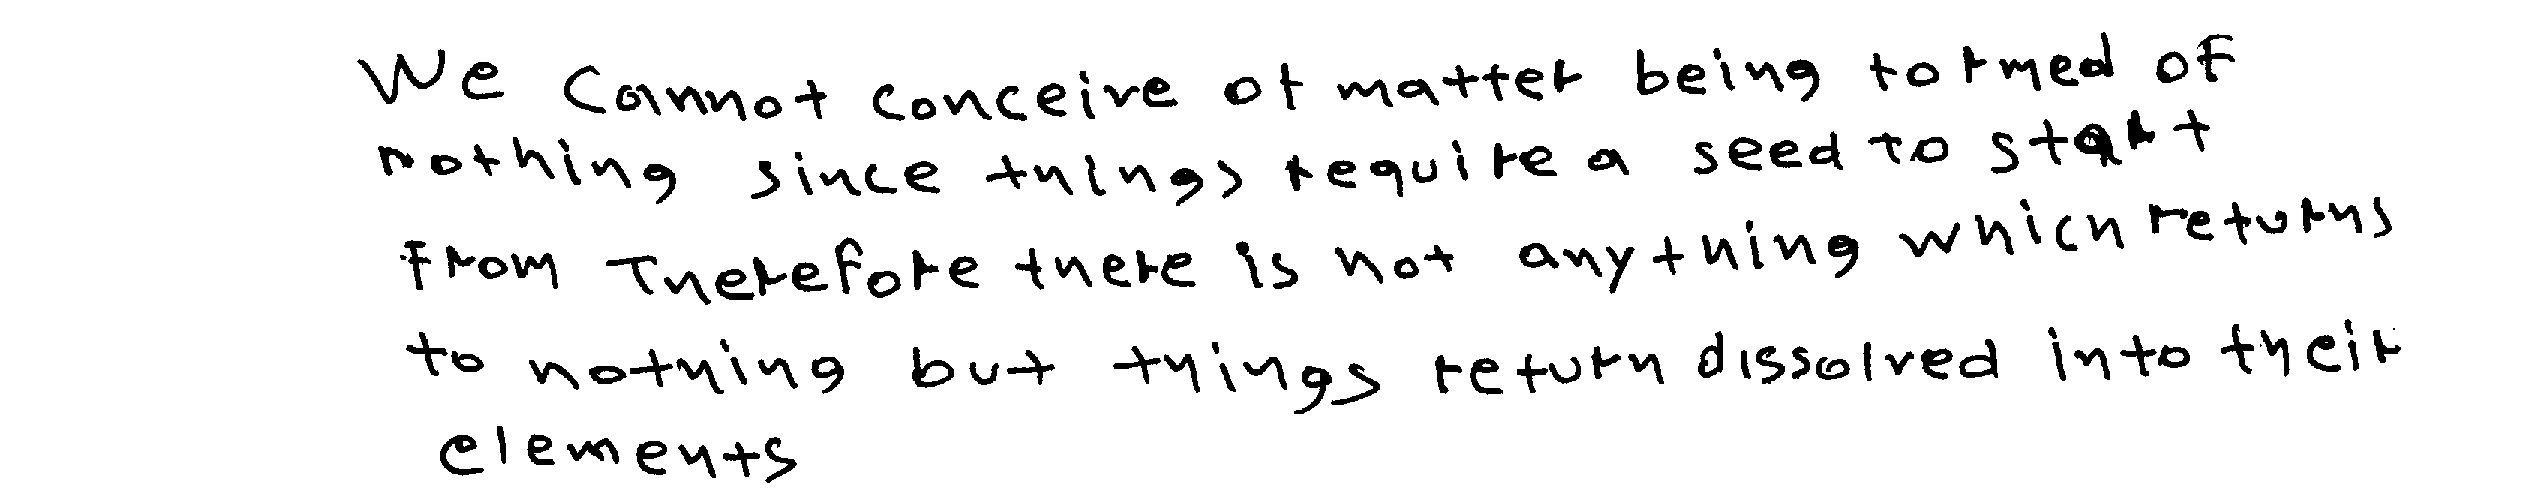 We cannot conceive of matter being formed of
nothing since things require a seed to start
from Therefore there is not anything which returns
to nothing but things return dissolved into their
elements